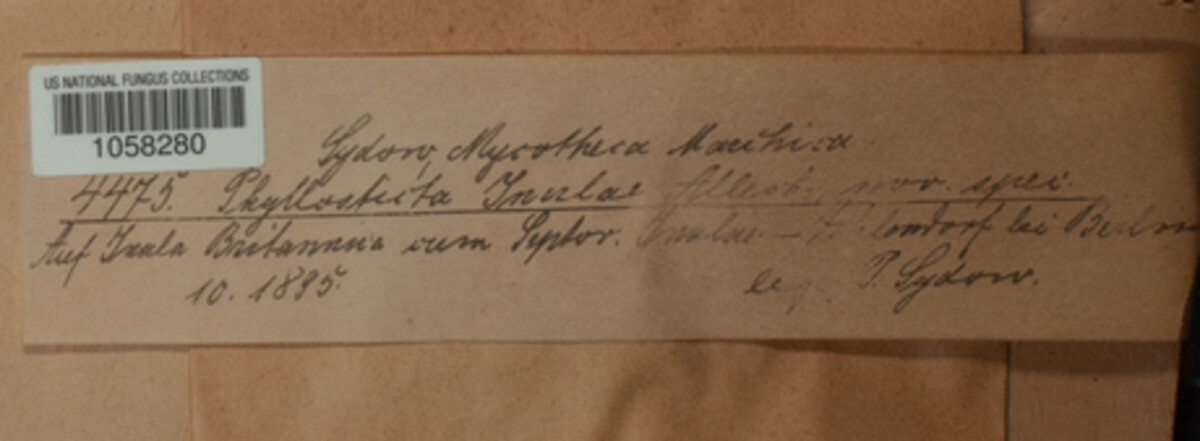 US NATIONAL FUNGUS COLLECTIONS
1058280
Sydow, Mycotheca Marchica
4475. Phyllosticta Inulae Allesch. nov. spec.
Auf Inula Britannica cum Septor. Inulae - bei Berlin
10. 1895.
leg. P. Sydow.